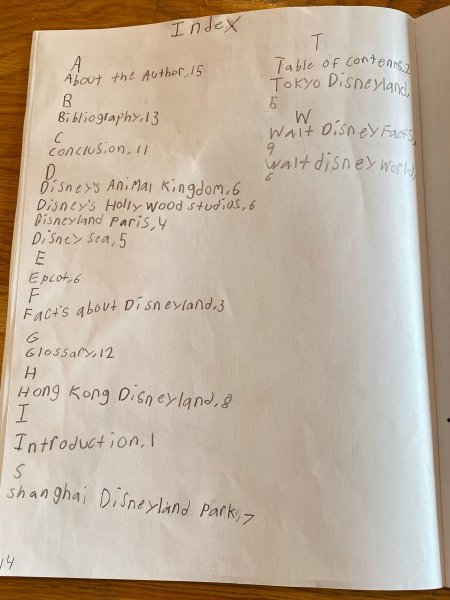 Index
A
About the Author, 15
B
Bibliography, 13
C
Conclusion, 11
D
Disney's Animal Kingdom, 6
Disney's Hollywood Studios, 6
Disneyland Paris, 4
Disney Sea, 5
E
Epcot, 6
F
Facts about Disneyland, 3
G
Glossary, 12
H
Hong Kong Disneyland, 8
I
Introduction, 1
S
Shanghai Disneyland Park, 7
T
Table of contents, 2
Tokyo Disneyland,
5
W
Walt Disney Facts,
9
Walt disney World,
6
14